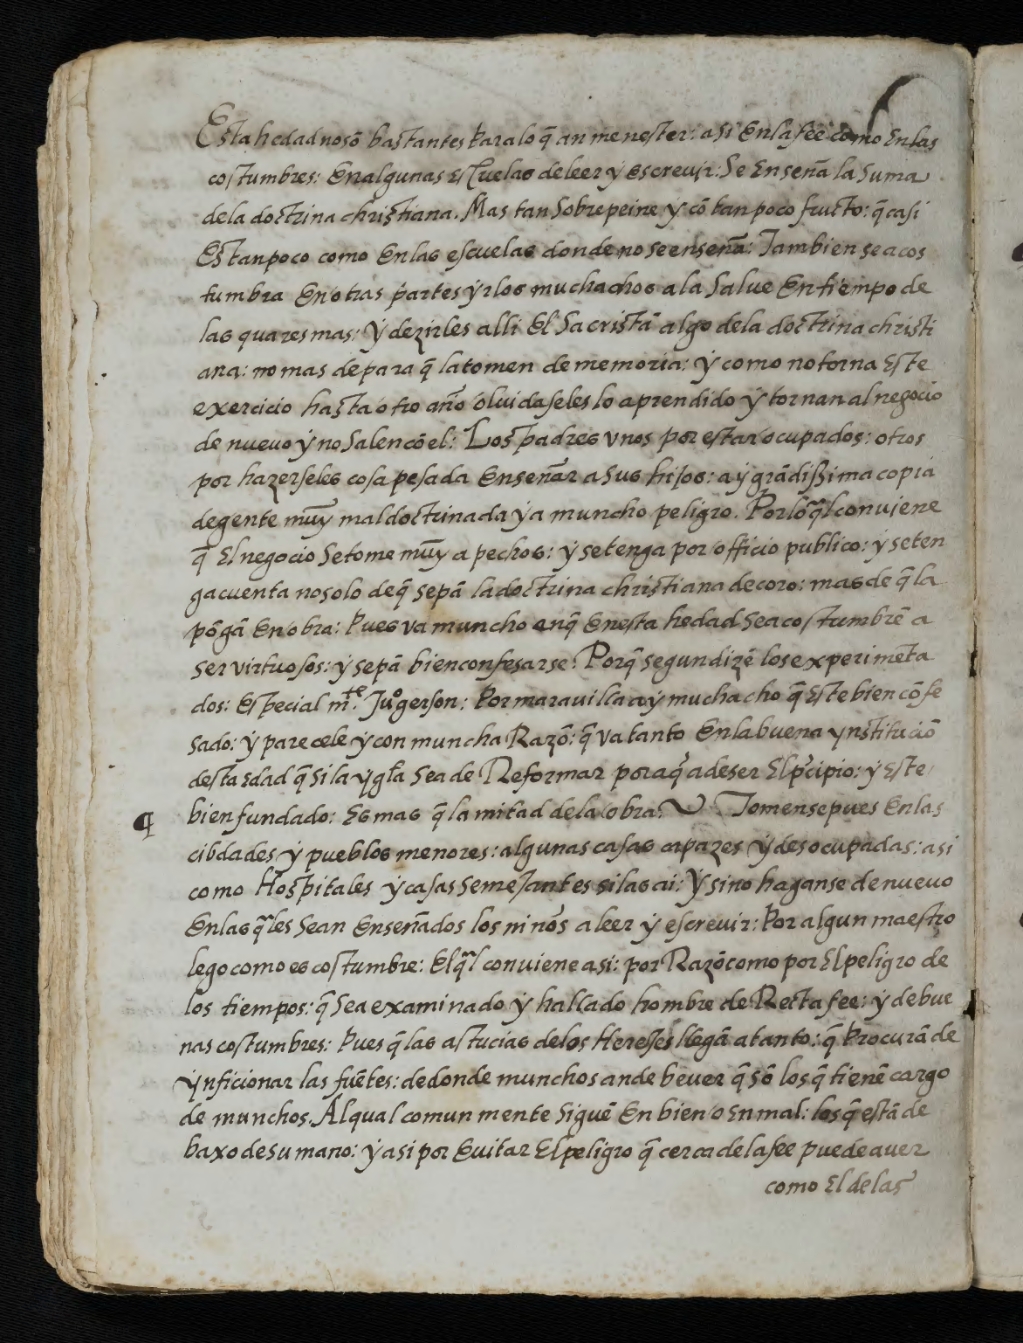 Esta hedad nosõ bastantes para lo q̃ an menester: asi En la fee como En las
costumbres: En algunas escuelas de leer ẏ escreuir: Se Enseña la Suma
de la doctrina christiana. Mas tan Sobrepeine y cõ tan poco fructo: q̃ casi
Es tan poco como En las escuelas donde no se enseña: Tambien se acos
tumbra En otras partes ẏr los muchachos a la Salue En tiempo de
las quaresmas: ẏ dezirles alli El Sacristã algo de la doctrina christi
ana: no mas de para q̃ la tomen de memoria: ẏ como no torna Este
exercicio hasta otro año oluidaseles lo aprendido ẏ tornan al negocio
de nueuo ẏ no Salen cõ el: Los padres vnos por estar ocupados: otros
por hazerseles cosa pesada Enseñar a Sus hijos: aẏ grãdissima copia
de gente muẏ mal doctrinada ẏ a muncho peligro. Por lo q̃l conuiene
q̃ El negocio Se tome muẏ a pechos: ẏ se tenga por officio publico: ẏ se ten
ga cuenta no solo de q̃ sepã la doctrina christiana de coro: mas de q̃ la
põgã En obra: Pues va muncho en q̃ En esta hedad Se acostumbrẽ a
ser virtuosos: ẏ sepã bien confesarse: Porq̃ segun dizẽ los experimẽta
dos: Especial m.te Juº gerson: Por marauilla aẏ muchacho q̃ Este bien cõfe
sado: ẏ parecele ẏ con muncha Razõ: q̃ va tanto En la buena ynstituciõ
desta edad q̃ si la ẏgľa Sea de Reformar por aq̃ a de ser El p̃cipio: ẏ Este
¶ bien fundado: Es mas q̃ la mitad de la obra. Tomense pues En las
cibdades ẏ pueblos menores: algunas casas capazes ẏ desocupadas: asi
como Hospitales ẏ casas Semejantes si las ai: ẏ Si no haganse de nueuo
En las q̃les Sean Enseñados los niños a leer ẏ escreuir: Por algun maestro
lego como es costumbre: El q̃l conuiene asi: por Razõ como por El peligro de
los tiempos: q̃ Sea examinado ẏ hallado hombre de Recta fee: ẏ de bue
nas costumbres: Pues q̃ las astucias de los Herejes llegã a tanto: q̃ Procurã de
ẏnficionar las fuẽtes: de donde munchos an de beuer q̃ sõ los q̃ tienẽ cargo
de munchos. Al qual comun mente Siguẽ En bien o En mal: los q̃ estã de
baxo de su mano: ẏ asi por Euitar El peligro q̃ cerca de la fee puede auer
como El de las